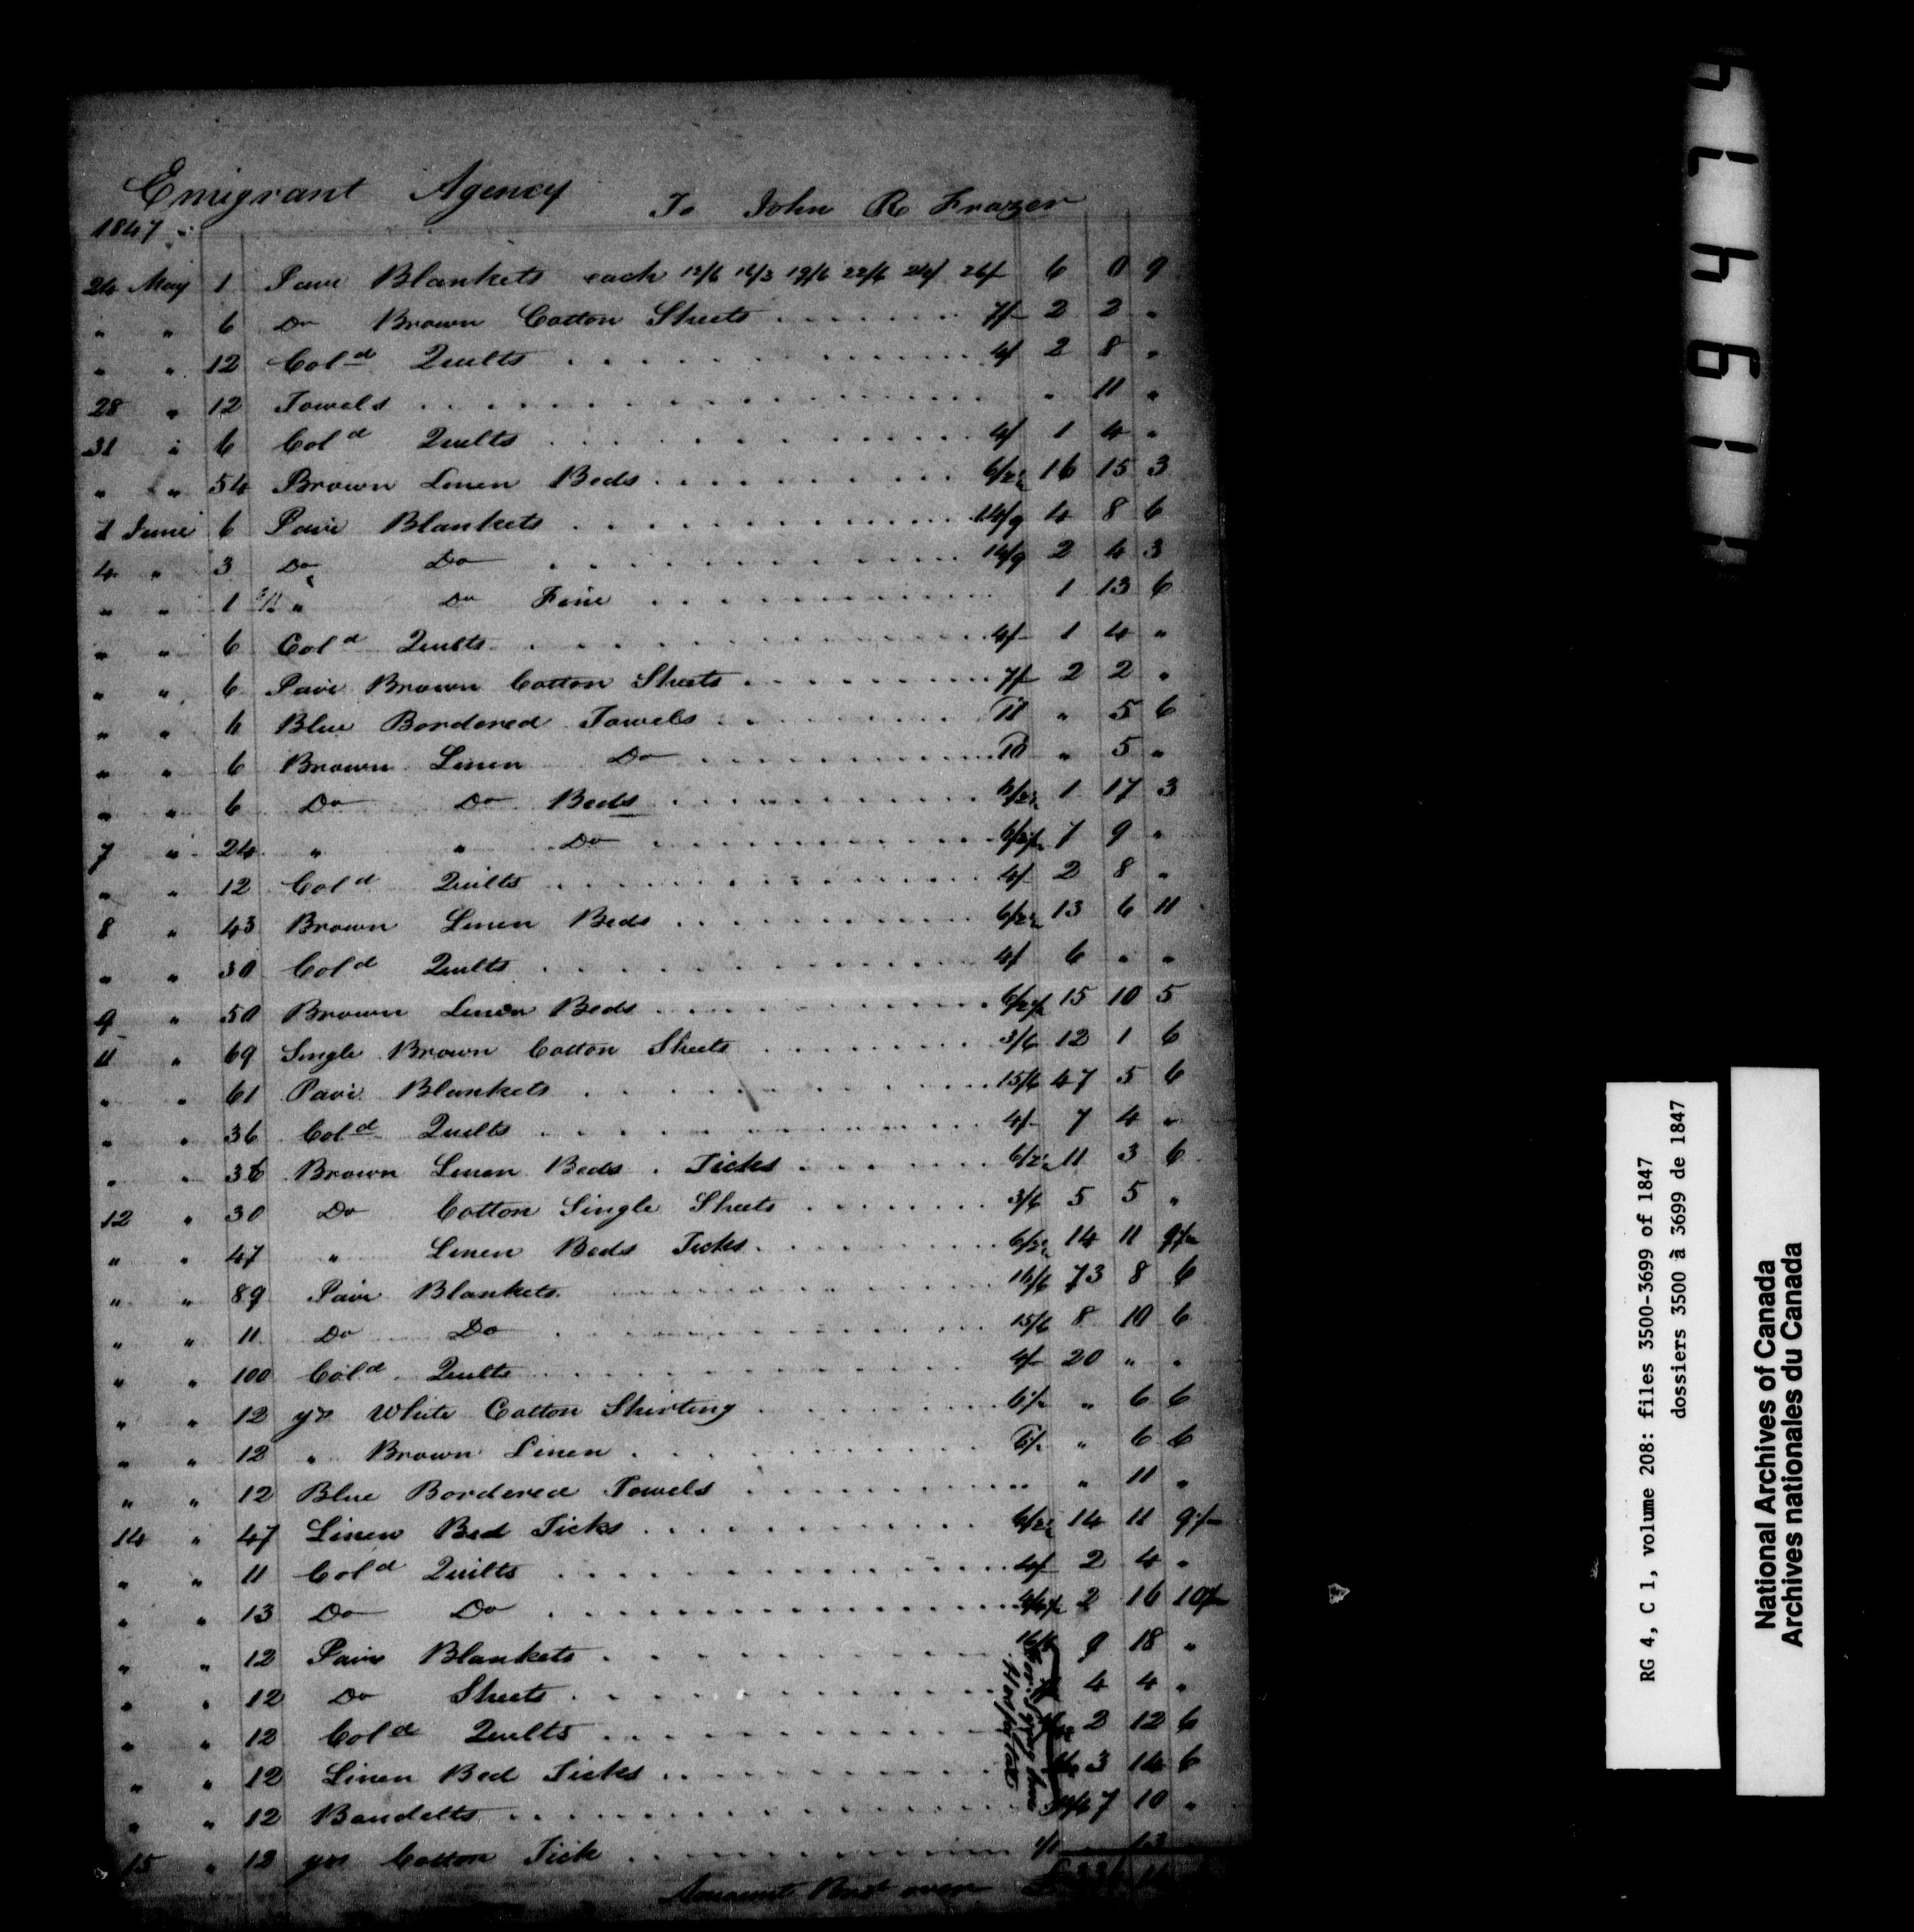 Emigrant Agency To John R Frazer
1847
24 May 1 Pair Blankets each 12/6 16/3 19/6 22/6 24/ 26/ 6 0 9
" " 6 Do Brown Cotton Sheets 7/- 2 2 "
" " 12 Cold Quilts 4/ 2 8 "
28 " 12 Towels " 11 "
31 " 6 Cold Quilts 4/ 1 4 "
" " 54 Brown Linen Beds 6/2½ 16 15 3
2 June 6 Pair Blankets 14/9 4 8 6
4 " 3 Do Do 14/9 2 4 3
" " 1 " Do Fine 1 13 6
" " 6 Cold Quilts 4/- 1 4 "
" " 6 Pair Brown Cotton Sheets 7/- 2 2 "
" " 6 Blue Bordered Towels 11 " 5 6
" " 6 Brown Linen Do 10 " 5 "
" " 6 Do Do Beds 6/2½ 1 17 3
7 " 24 " " Do 6/2½ 7 9 "
" " 12 Cold Quilts 4/- 2 8 "
8 " 43 Brown Linen Beds 6/2½ 13 6 11
" " 30 Cold Quilts 4/ 6 " "
9 " 50 Brown Linen Beds 6/2½ 15 10 5
11 " 69 Single Brown Cotton Sheets 3/6 12 1 6
" " 61 Pair Blankets 15/6 47 5 6
" " 36 Cold Quilts 4/- 7 4 "
" " 36 Brown Linen Beds Ticks 6/2½ 11 3 6
12 " 30 Do Cotton Single Sheets 3/6 5 5 "
" " 47 " Linen Beds Ticks 6/2½ 14 11 9½
" " 89 Pair Blankets 16/6 73 8 6
" " 11 Do Do 15/6 8 10 6
" " 100 Cold Quilts 4/- 20 " "
" " 12 yds White Cotton Shirting 6½ " 6 6
" " 12 " Brown Linen 6½ " 6 6
" " 12 Blue Bordered Towels " 11 "
14 " 47 Linen Bed Ticks 6/2½ 14 11 9½
" " 11 Cold Quilts 4/ 2 4 "
" " 13 Do Do 4/4½ 2 16 10½
" " 12 Pairs Blankets 16/6 9 18 "
" " 12 Do Sheets 4 4 "
" " 12 Cold Quilts 2 12 6
" " 12 Linen Bed Ticks 3 14 6
" " 12 Bandetts 12/6 7 10 "
Hospital
15 " 12 yds Cotton Tick 1/1 13
Amount over £
1 6 4 7 4
RG 4, C 1, volume 208: files 3500-3699 of 1847
dossiers 3500 à 3699 de 1847
National Archives of Canada
Archives nationales du Canada